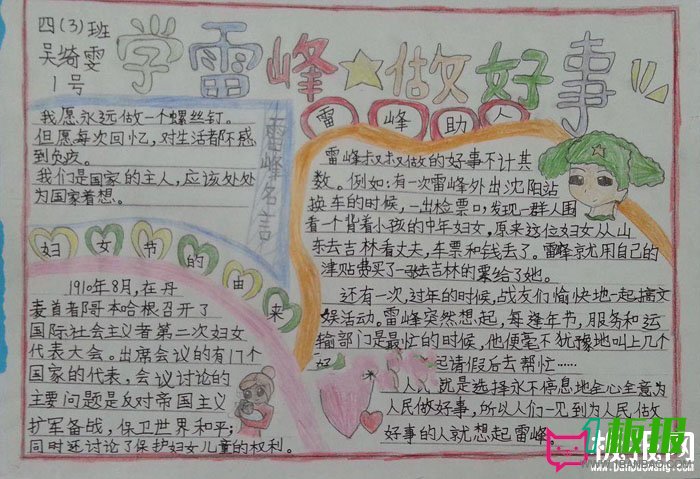 四(3)班
吴绮雯
1号
学雷峰做好事
我愿永远做一个螺丝钉。
但愿每次回忆,对生活都不感
到负疚。
我们是国家的主人,应该处处
为国家着想。
雷峰名言
雷峰助人
雷峰叔叔做的好事不计其
数。例如:有一次雷峰外出沈阳站
换车的时候,一出检票口,发现一群人围
看一个背着小孩的中年妇女,原来这位妇女从山
东去吉林看丈夫,车票和钱丢了。雷峰就用自己的
津贴费买了一张去吉林的票给了她。
还有一次,过年的时候,战友们愉快地一起搞文
娱活动。雷峰突然想起,每逢年节,服务和运
输部门是最忙的时候,他便毫不犹豫地叫上几个
好
起请假后去帮忙……
人人 就是选择永不停息地全心全意为
人民做好事,所以人们一见到为人民做
好事的人就想起雷峰。
妇女节的由来
1910年8月,在丹
麦首者阝哥本哈根召开了
国际社会主义者第二次妇女
代表大会。出席会议的有17个
国家的代表,会议讨论的
主要问题是反对帝国主义
扩军备战,保卫世界和平;
同时还讨论了保护妇女儿童的权利。
板报